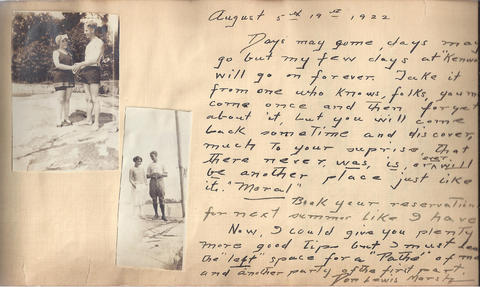 August 5th 19 st 1922
Days may gome, days may
go but my few days at "Kenwo
will go on forever. Take it
from one who knows, folks, you m
come once and then forget
about it, but you will come
back sometime and discover,
much to your suprise, that
there never, was, is, or ever will
be another place just like
it. "Moral"
Book your reservation
for next summer like I have
Now, I could give you plenty
more good tips but I must lea
the "left" space for a "Pathe" of me
and another party of the first part.
Lewis